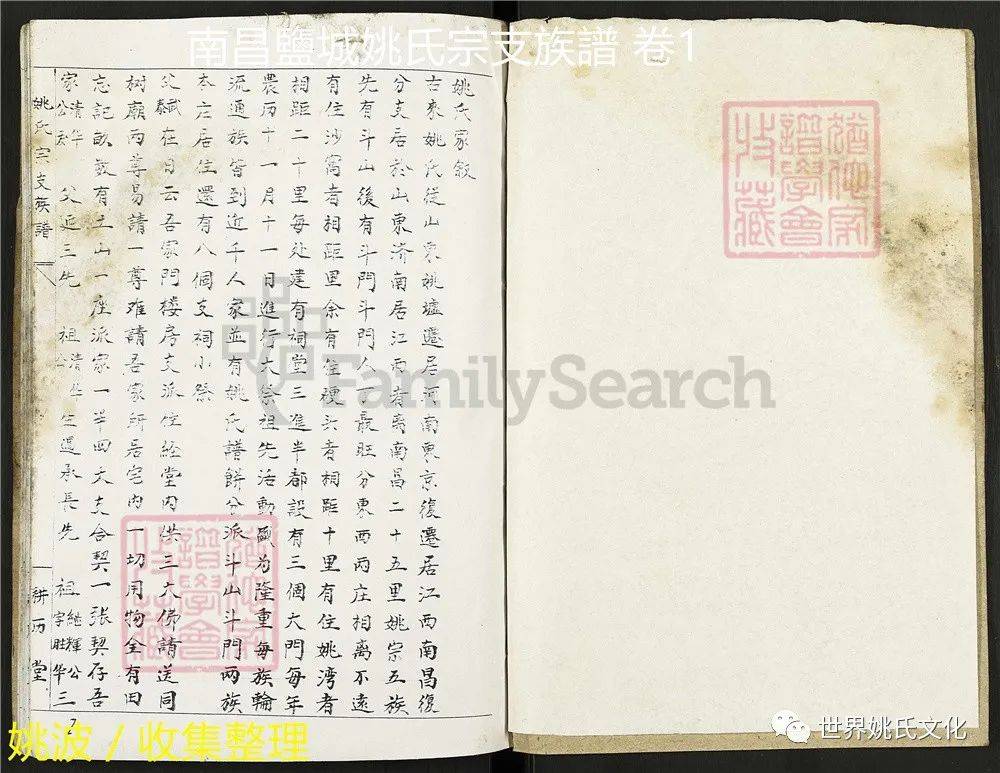 南昌鹽城姚氏宗支族譜 卷1
姚氏家叙
古來姚氏從山東姚墟遷居河南東京復遷居江西南昌復
分支居於山東济南居江西者离南昌二十五里姚宗五族
先有斗山後有斗門斗門人丁最旺分東西两庄相离不遠
有住沙窩者相距里余有住硬头者相距十里有住姚湾者
相距二十里每处建有祠堂三進半都設有三個大門每年
農历十一月十一日進行大祭祖先活動盛为隆重每族輪
流通族皆到近千人家並有姚氏譜餅分派斗山斗門两族
本庄居住還有八個支祠小祭
父䋎在日云吾家門楼房支派住经堂内供三大佛請送同
树廟两尊易請一尊难請吾家所居宅内一切用物全有田
忘記畝数有土山一座派家一半四大支合契一张契存吾
家清华公 父延三先 祖清华公生還承長先 祖継輝公字胜华三
姚氏宗支族譜
耕历堂
7
譜學會
收藏
譜學會
收藏
FamilySearch
姚波／收集整理
世界姚氏文化